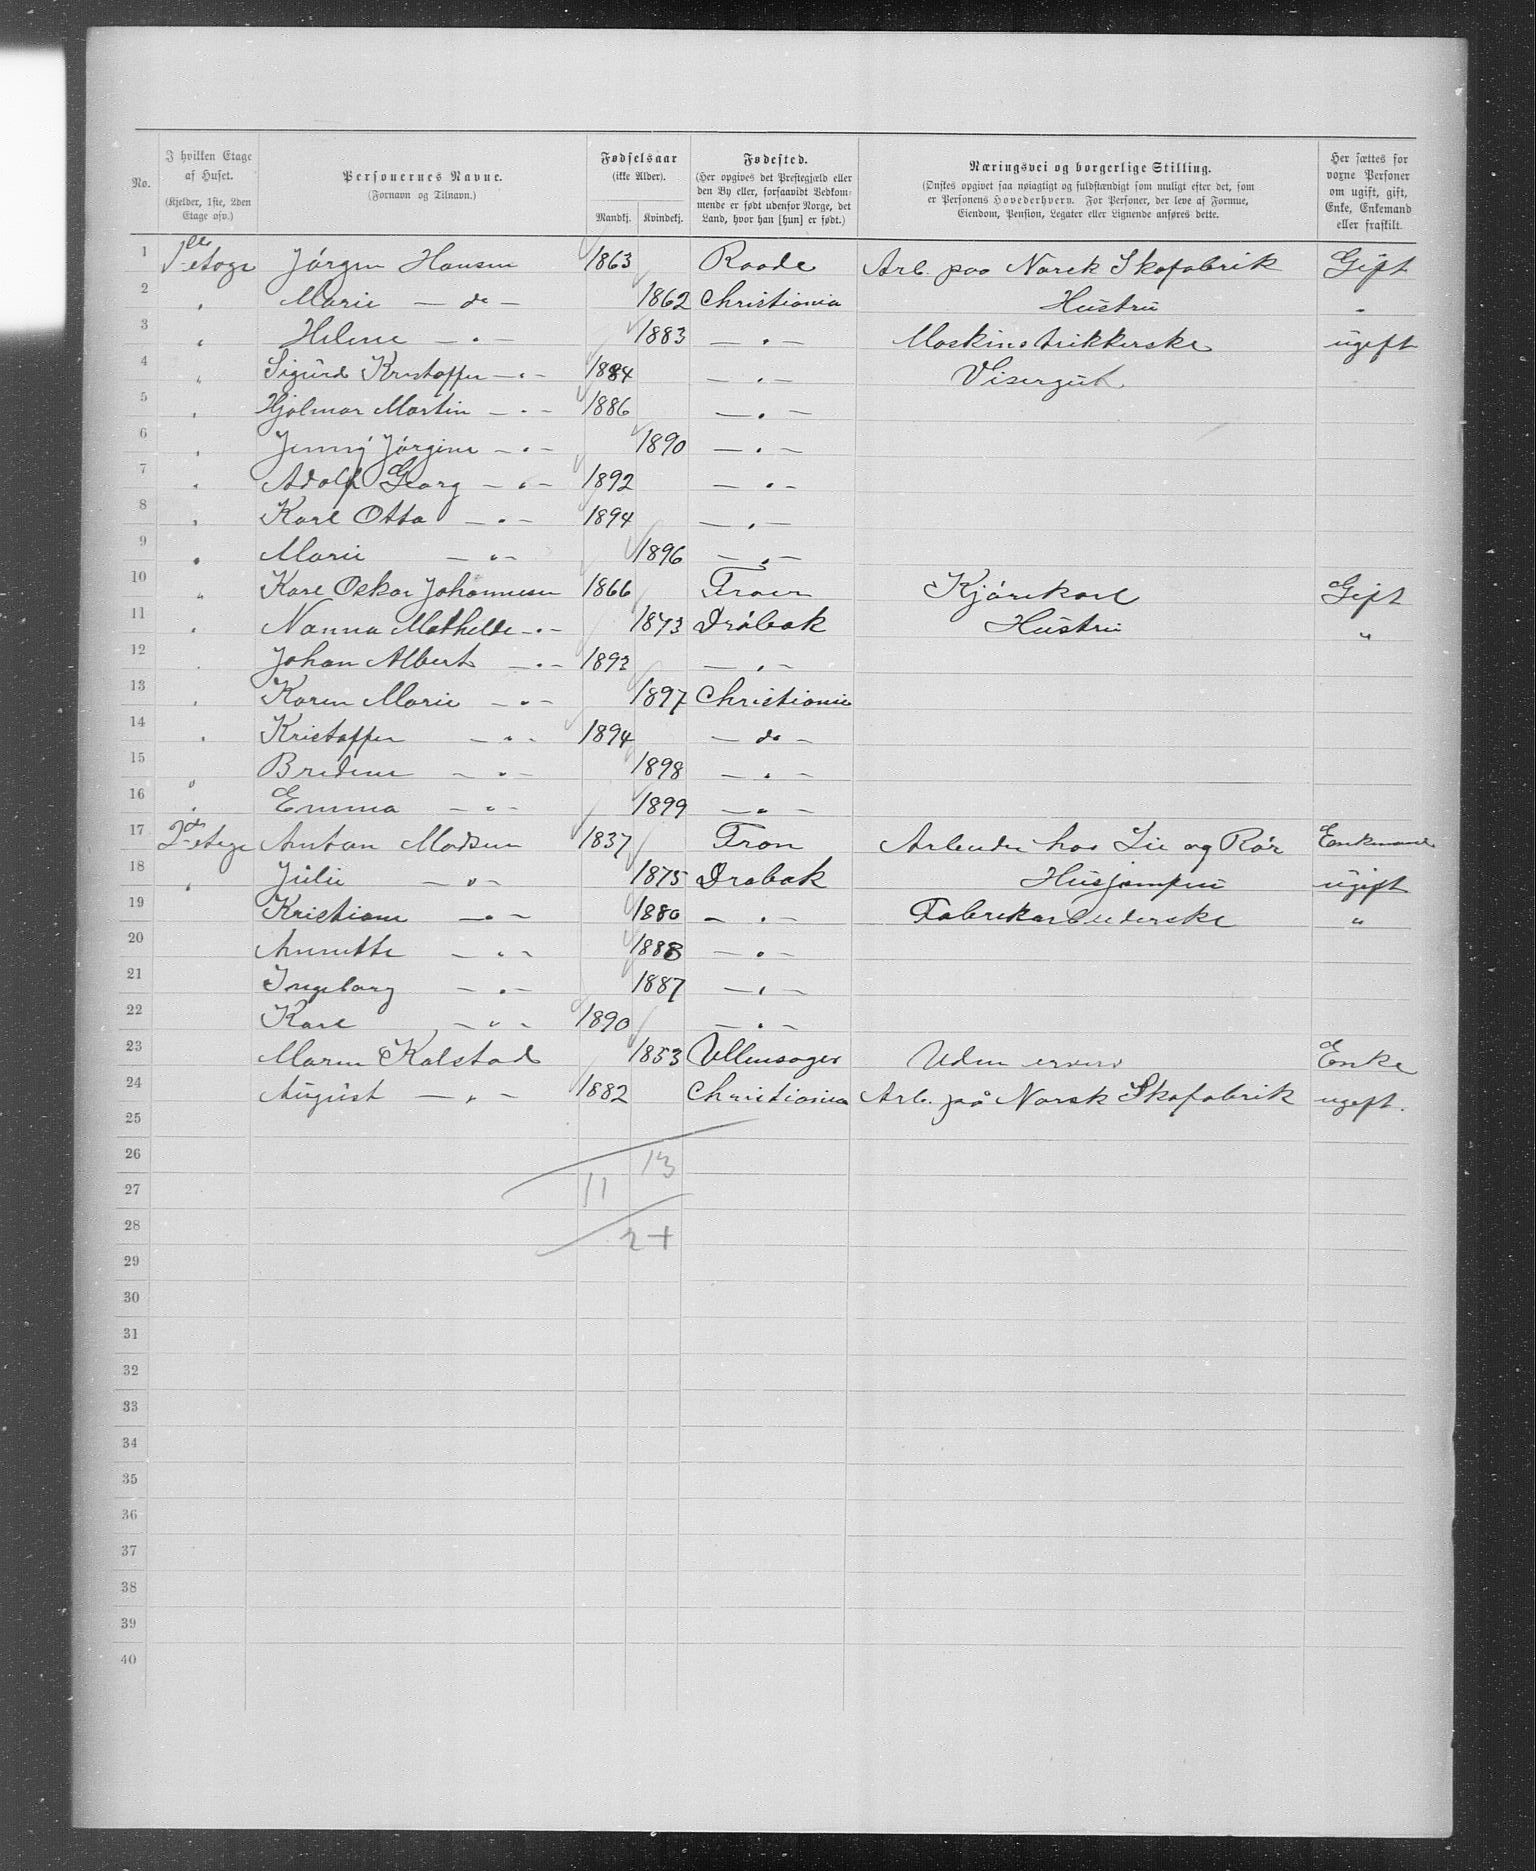 No. | I hvilken Etage af Huset. (Kjelder, 1ste, 2den Etage osv.) | Personernes Navne. (Fornavn og Tilnavn.) | Fødselsaar (ikke Alder). Mandkj. Kvindekj. | Fødested. (Her opgives det Prestegjæld eller den By eller, forsaavidt Vedkommende er født udenfor Norge, det Land, hvor han [hun] er født.) | Næringsvei og borgerlige Stilling. (Ønskes opgivet saa nøiagtigt og fuldstændigt som muligt efter det, som er Personens Hovederhverv. For Personer, der leve af Formue, Eiendom, Pension, Legater eller Lignende anføres dette. | Her sættes for voxne Personer om ugift, gift, Enke, Enkemand eller fraskilt.
1 1ste etage Jørgen Hansen 1863 Raade Arb. paa Norsk Skofabrik Gift
2 " Marie — do — 1862 Christiania Hustru "
3 " Helene — " — 1883 — " — Maskinstrikkerske ugift
4 " Sigurd Kristoffer — " — 1884 — " — Visergut
5 " Hjalmar Martin — " — 1886 — " —
6 " Jenny Jørgine — " — 1890 — " —
7 " Adolf Georg — " — 1892 — " —
8 " Karl Otto — " — 1894 — " —
9 " Marie — " — 1896 — " —
10 " Karl Oskar Johannesen 1866 Kjørekarl Gift
11 " Nanna Mathilde — " — 1873 Drøbak Hustru "
12 " Johan Albert — " — 1893 — " —
13 " Karen Marie — " — 1897 Christiania
14 " Kristoffer — " — 1894 — do —
15 " Bredine — " — 1898 — " —
16 " Emma — " — 1899 — " —
17 2den etage Anton Madsen 1837 Fron Arbeider hos Lie og Rør Enkemand
18 " Julie — " — 1875 Drøbak Husjomfru ugift
19 Kristiane — " — 1880 — " — Fabrikarbeiderske "
20 Annette — " — 1888 — " —
21 Ingeborg — " — 1887 — " —
22 Karl — " — 1890 — " —
23 Maren Kalstad 1853 Ullensager Uden erverv Enke
24 August — " — 1882 Christiania Arb. på Norsk Skofabrik ugift.
25
26 13
27 11
28 24
29
30
31
32
33
34
35
36
37
38
39
40